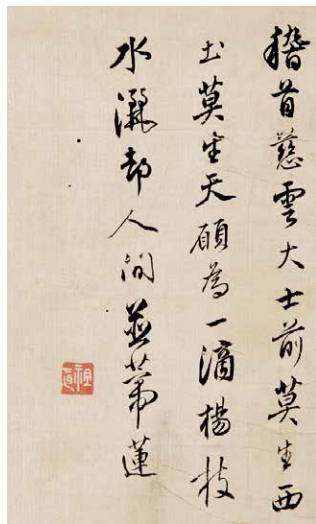 稽首慈雲大士前莫生西
土莫生天願為一滴楊枝
水灑却人間並蒂蓮